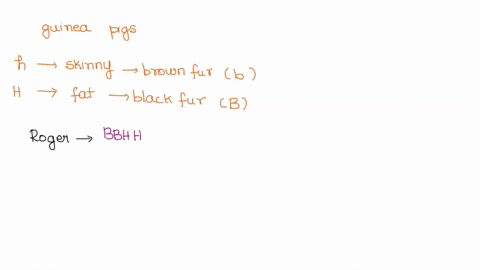 guinea pigs
h → skinny → brown fur (b)
H → fat → black fur (B)
Roger → BBHH